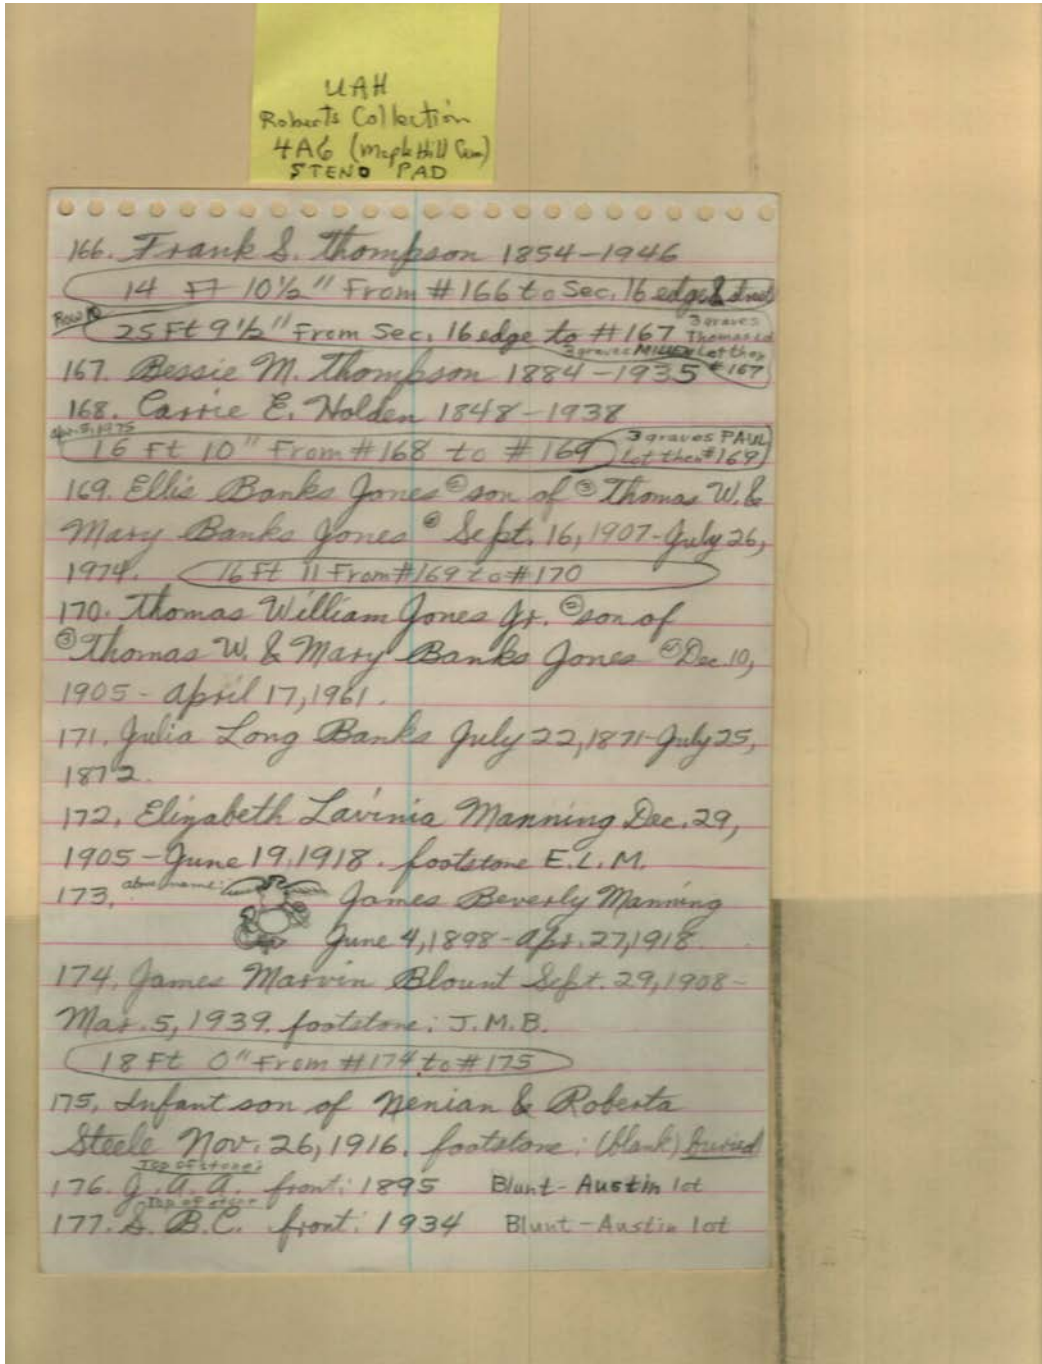 UAH
Roberts Collection
4A6 (Maple Hill Cem)
STENO PAD
166. Frank S. Thompson 1854-1946
14 Ft 10½" From #166 to Sec. 16 edge & street
Row 10
25 Ft 9½" From Sec. 16 edge to #167
3 graves
Thomas Lot
3 graves MILLEN Lot then
#167
167. Bessie M. Thompson 1884-1935
168. Carrie E. Holden 1848-1938
Apr. 5, 1975
16 Ft 10" From #168 to #169
3 graves PAUL
Lot then #169
169. Ellis Banks Jones ② son of ③ Thomas W. &
Mary Banks Jones ④ Sept. 16, 1907-July 26,
1974.
16 Ft 11 From #169 to #170
170. Thomas William Jones Jr. ② son of
③ Thomas W. & Mary Banks Jones ④ Dec. 10,
1905 - April 17, 1961.
171. Julia Long Banks July 22, 1871-July 25,
1872.
172. Elizabeth Lavinia Manning Dec. 29,
1905-June 19, 1918. footstone E.L.M.
173. above name: James Beverly Manning
June 4, 1898-Apr. 27, 1918.
174. James Marvin Blount Sept. 29, 1908-
Mar. 5, 1939. footstone: J.M.B.
18 Ft 0" From #174 to #175
175. Infant son of Nenian & Roberta
Steele Nov. 26, 1916. footstone: (blank) buried
Top of stone:
176. J.A.A. front: 1895 Blunt-Austin lot
Top of stone
177. S.B.C. front: 1934 Blunt-Austin lot